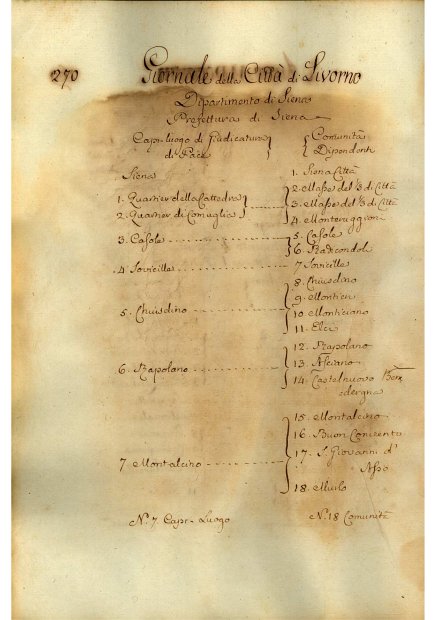 270
Giornale della Città di Livorno
Dipartimento di Siena
Prefettura di Siena
Capi-luogo di Giudicatura di Pace
Comunità Dipendenti
Siena
1. Siena Città
1. Quartier della Cattedra
2. Quartier di
2. Masse del 1/3 di Città
3. Masse del 1/3 di Città
4. Monteriggioni
3. Casole
5. Casole
6. Radicondoli
4. Sovicille
7. Sovicille
5. Chiusdino
8. Chiusdino
9. Monticia
10. Monticiano
11. Elci
6. Rapolano
12. Rapolano
13. Asciano
14. Castelnuovo Ber
ardegna
7. Montalcino
15. Montalcino
16. Buon Convento
17. S. Giovanni d'
Asso
18. Murlo
N.° 7 Capi-Luogo
N.° 18 Comunità